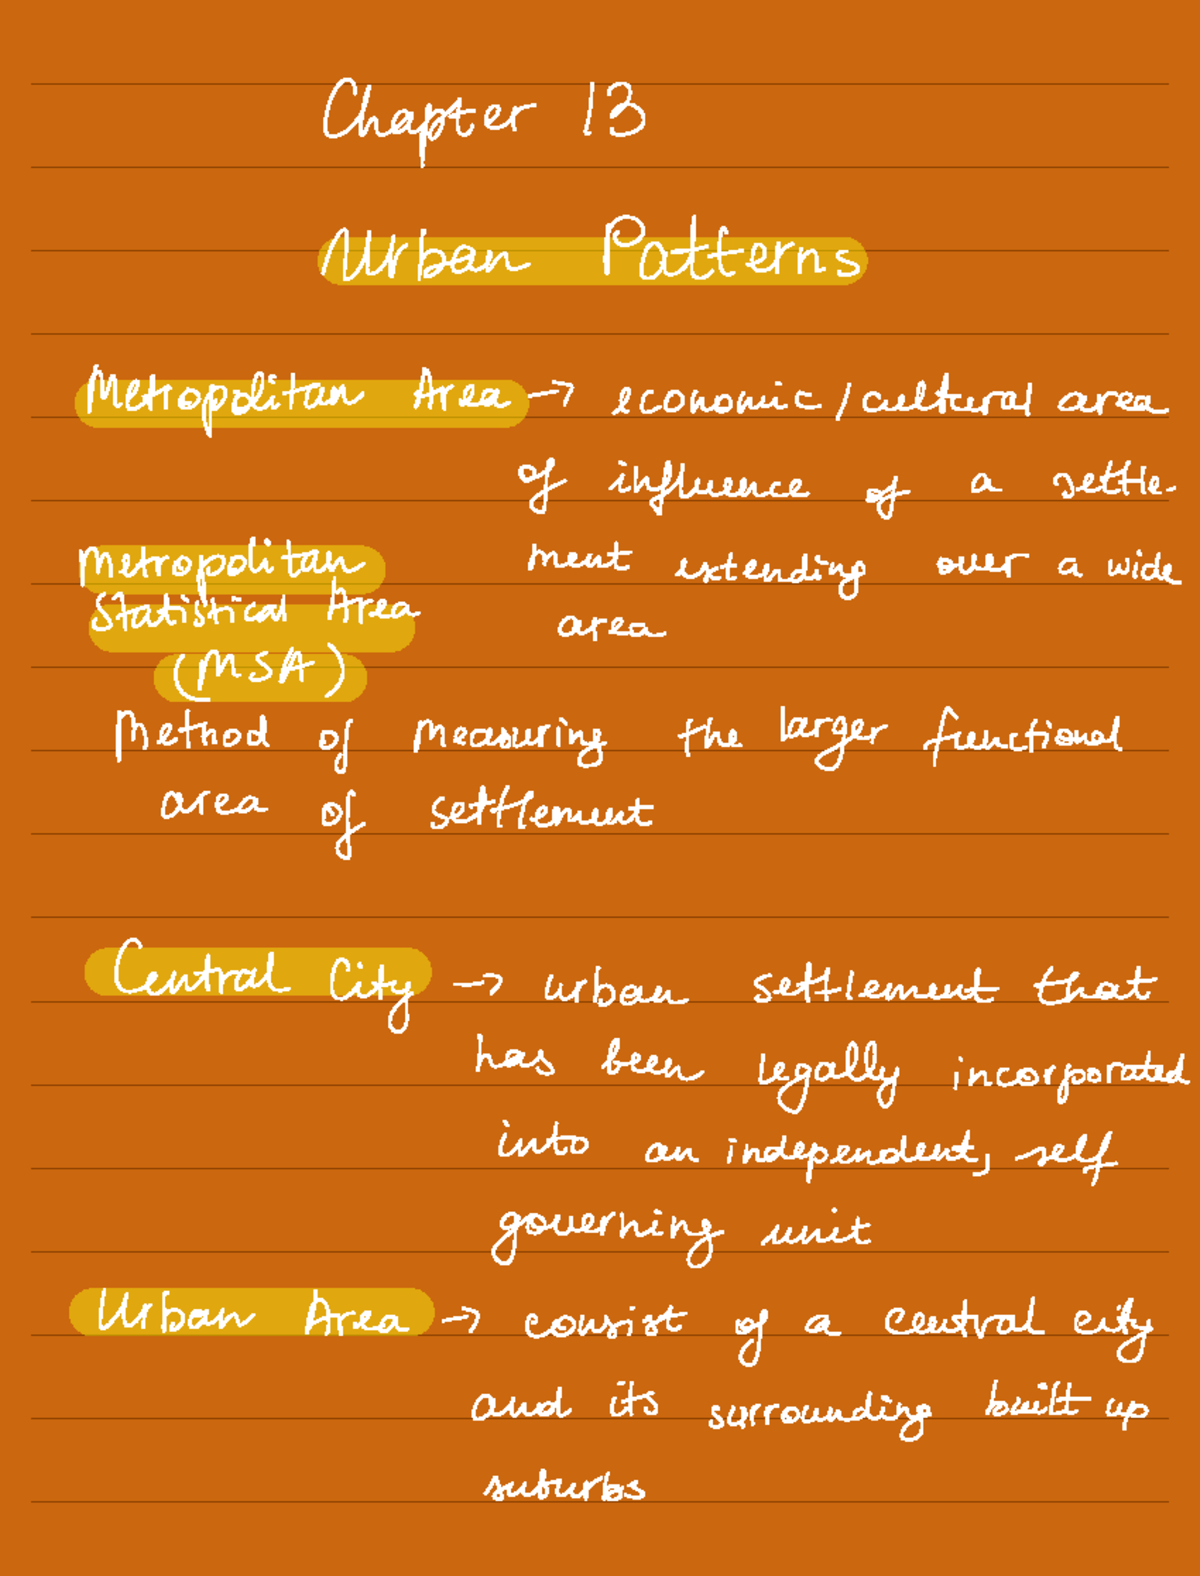 Chapter 13
Urban Patterns
Metropolitan Area → economic/cultural area
of influence of a settle-
ment extending over a wide
area
Metropolitan
Statistical Area
(MSA)
Method of measuring the larger functional
area of settlement
Central City → urban settlement that
has been legally incorporated
into an independent, self
governing unit
Urban Area → consist of a central city
and its surrounding built up
suburbs